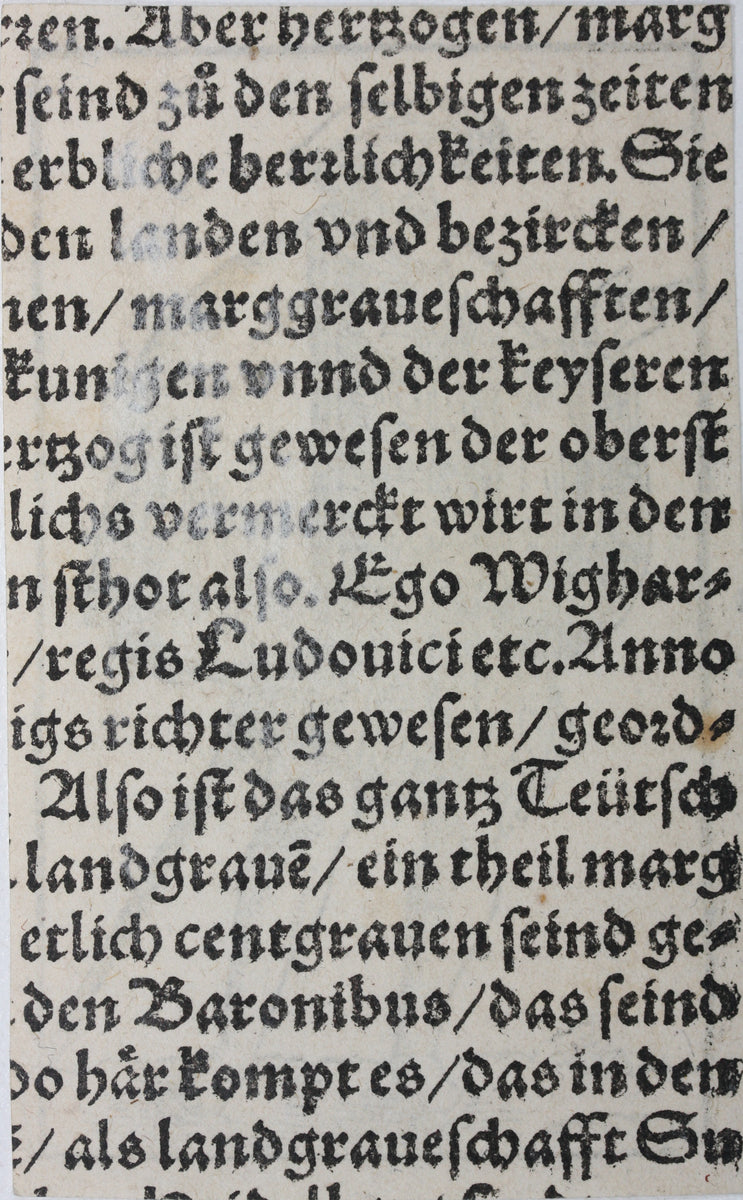 ꝛꝛen. Aber hertzogen/marg
ſeind zů den ſelbigen zeiten
erbliche herꝛlichkeiten. Sie
den landen vnd bezircken /
nen/ marggraueſchafften/
kunigen vnnd der keyſeren
ertzog iſt geweſen der oberſt
lichs vermerckt wirt in den
n ſthot alſo. Ego Wighar⸗
/regis Ludouici etc. Anno
igs richter geweſen/ geoꝛd⸗
Alſo iſt das gantz Teütſch
landgrauē/ ein theil marg
etlich centgrauen ſeind ge⸗
den Baronibus/das ſeind
do haͤr kompt es/das in den
/ als landgraueſchafft Su